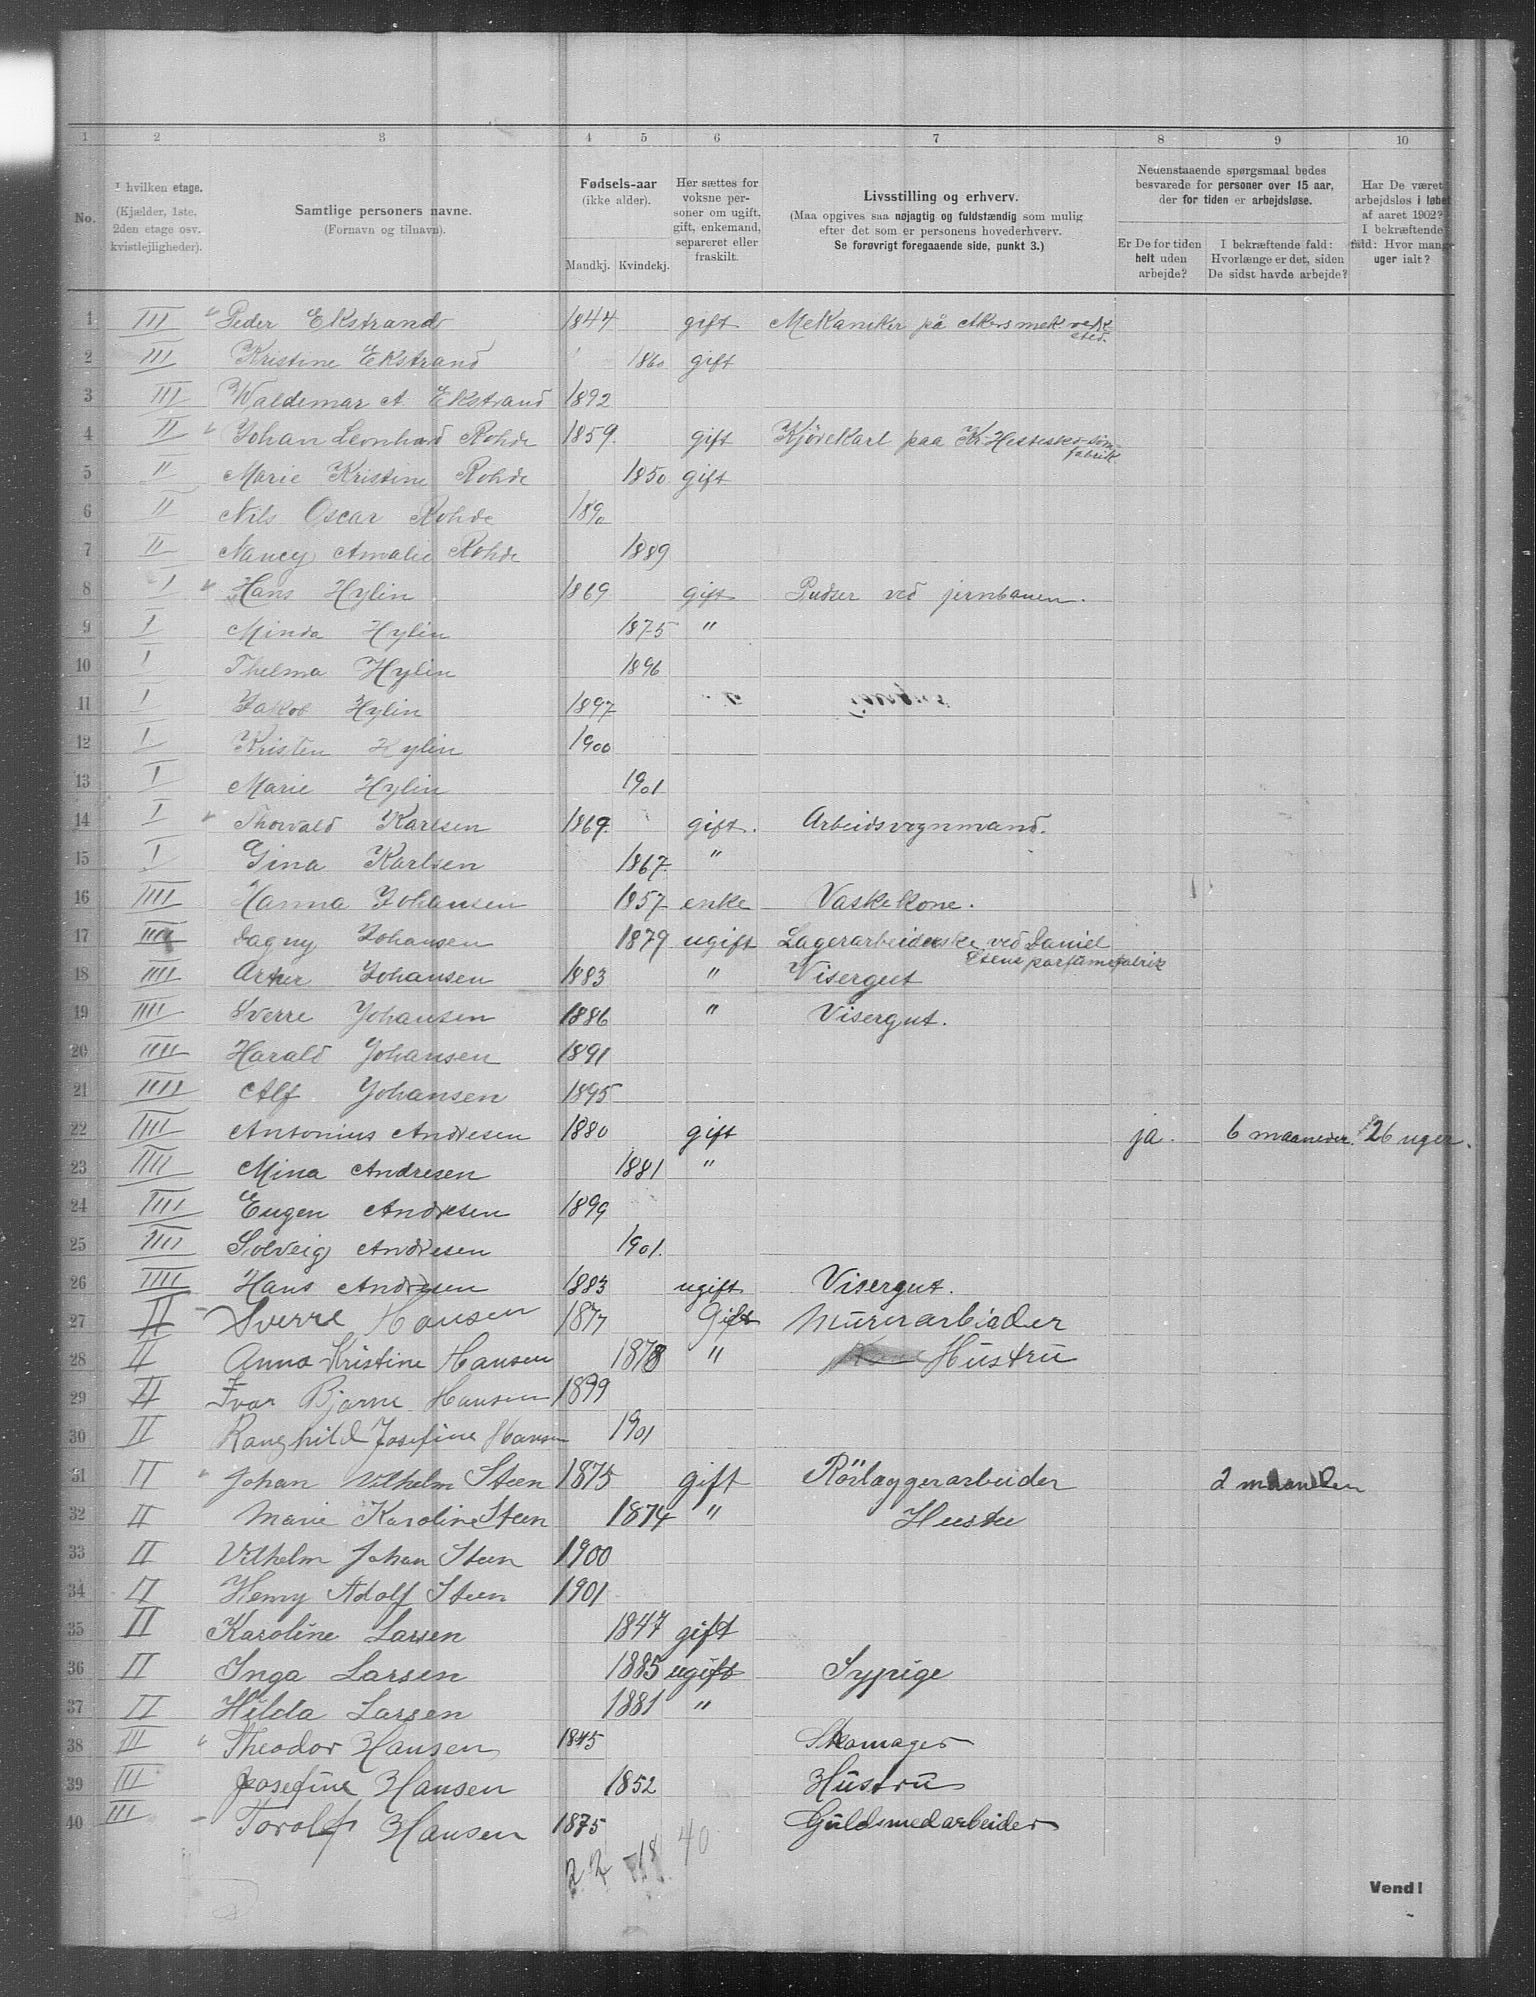 1 2 3 4 5 6 7 8 9 10
No. I hvilken etage. (Kjælder, 1ste, 2den etage osv. kvistlejligheder). Samtlige personers navne. (Fornavn og tilnavn). Fødsels-aar (ikke alder). Mandkj. Kvindekj. Her sættes for voksne personer om ugift, gift, enkemand, separeret eller fraskilt. Livsstilling og erhverv. (Maa opgives saa nøjagtig og fuldstændig som mulig efter det som er personens hovederhverv. Se forøvrigt foregaaende side, punkt 3.) Nedenstaaende spørgsmaal bedes besvarede for personer over 15 aar, der for tiden er arbejdsløse. Er De for tiden helt uden arbejde? I bekræftende fald: Hvorlænge er det, siden De sidst havde arbejde? Har De været arbejdsløs i løbet af aaret 1902? I bekræftende fald: Hvor mange uger ialt?
1 III Peder Ekstrand 1844 gift Mekaniker på Akers mek verksted.
2 III Kristine Ekstrand 1860 gift
3 III Waldemar A. Ekstrand 1892
4 II Johan Leonhard Rohde 1859 gift Kjørekarl paa Kr. Hesteskosømfabrik
5 II Marie Kristine Rohde 1850 gift
6 II Nils Oscar Rohde 1890
7 II Nancy Amalie Rohde 1889
8 I Hans Hylin 1869 gift Pudser ved jernbanen.
9 I Minda Hylin 1875 "
10 I Thelma Hylin 1896
11 I Jakob Hylin 1897
12 I Kristen Hylin 1900
13 I Marie Hylin 1901
14 I Thorvald Karlsen 1869 gift. Arbeidsvognmand.
15 I Gina Karlsen 1867 "
16 IIII Hanna Johansen 1857 enke Vaskekone.
17 IIII Dagny Johansen 1879 ugift Lagerarbeiderske ved Daniel Stens parfumefabrik
18 IIII Arther Johansen 1883 " Visergut
19 IIII Sverre Johansen 1886 " Visergut.
20 IIII Harald Johansen 1891
21 IIII Alf Johansen 1895
22 IIII Antonius Andresen 1880 gift ja. 6 maaneder. 26 uger.
23 IIII Mina Andresen 1881 "
24 IIII Eugen Andresen 1899
25 IIII Solveig Andresen 1901.
26 IIII Hans Andresen 1883 ugift Visergut.
27 II Sverre Hansen 1877 Gift Murerarbeider
28 II Anna Kristine Hansen 1878 " Hustru
29 II Ivar Bjarne Hansen 1899
30 II Ranghild Josefine Hansen 1901
31 II Johan Vilhelm Steen 1875 gift Rörlæggerarbeider 2 maaneder
32 II Marie Karoline Steen 1874 " Hustru
33 II Vilhelm Johan Steen 1900
34 II Henry Adolf Steen 1901
35 II Karoline Larsen 1847 gift
36 II Inga Larsen 1885 ugift Sypige
37 II Hilda Larsen 1881 "
38 III Theodor Hansen 1845 Skomager
39 III Josefine Hansen 1852 Hustru
40 III Torolf Hansen 1875 Guldsmedarbeider
22 18 40
Vend!